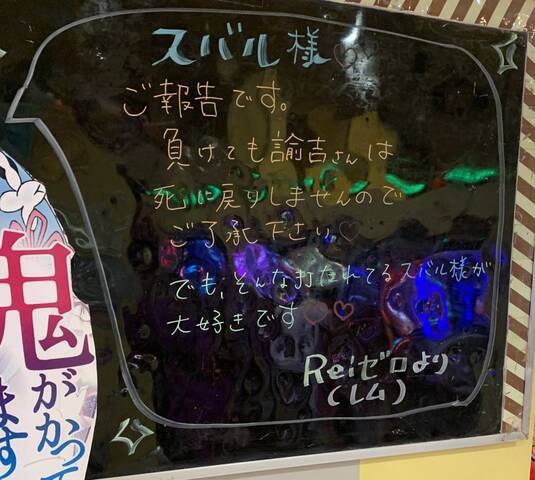 スバル様♡
ご報告です。
負けても諭吉さんは
死に戻りしませんので
ご了承下さい♡
でも、そんな打たれてるスバル様が
大好きです♡♡
Reiゼロより
(レム)
鬼がかって
ます